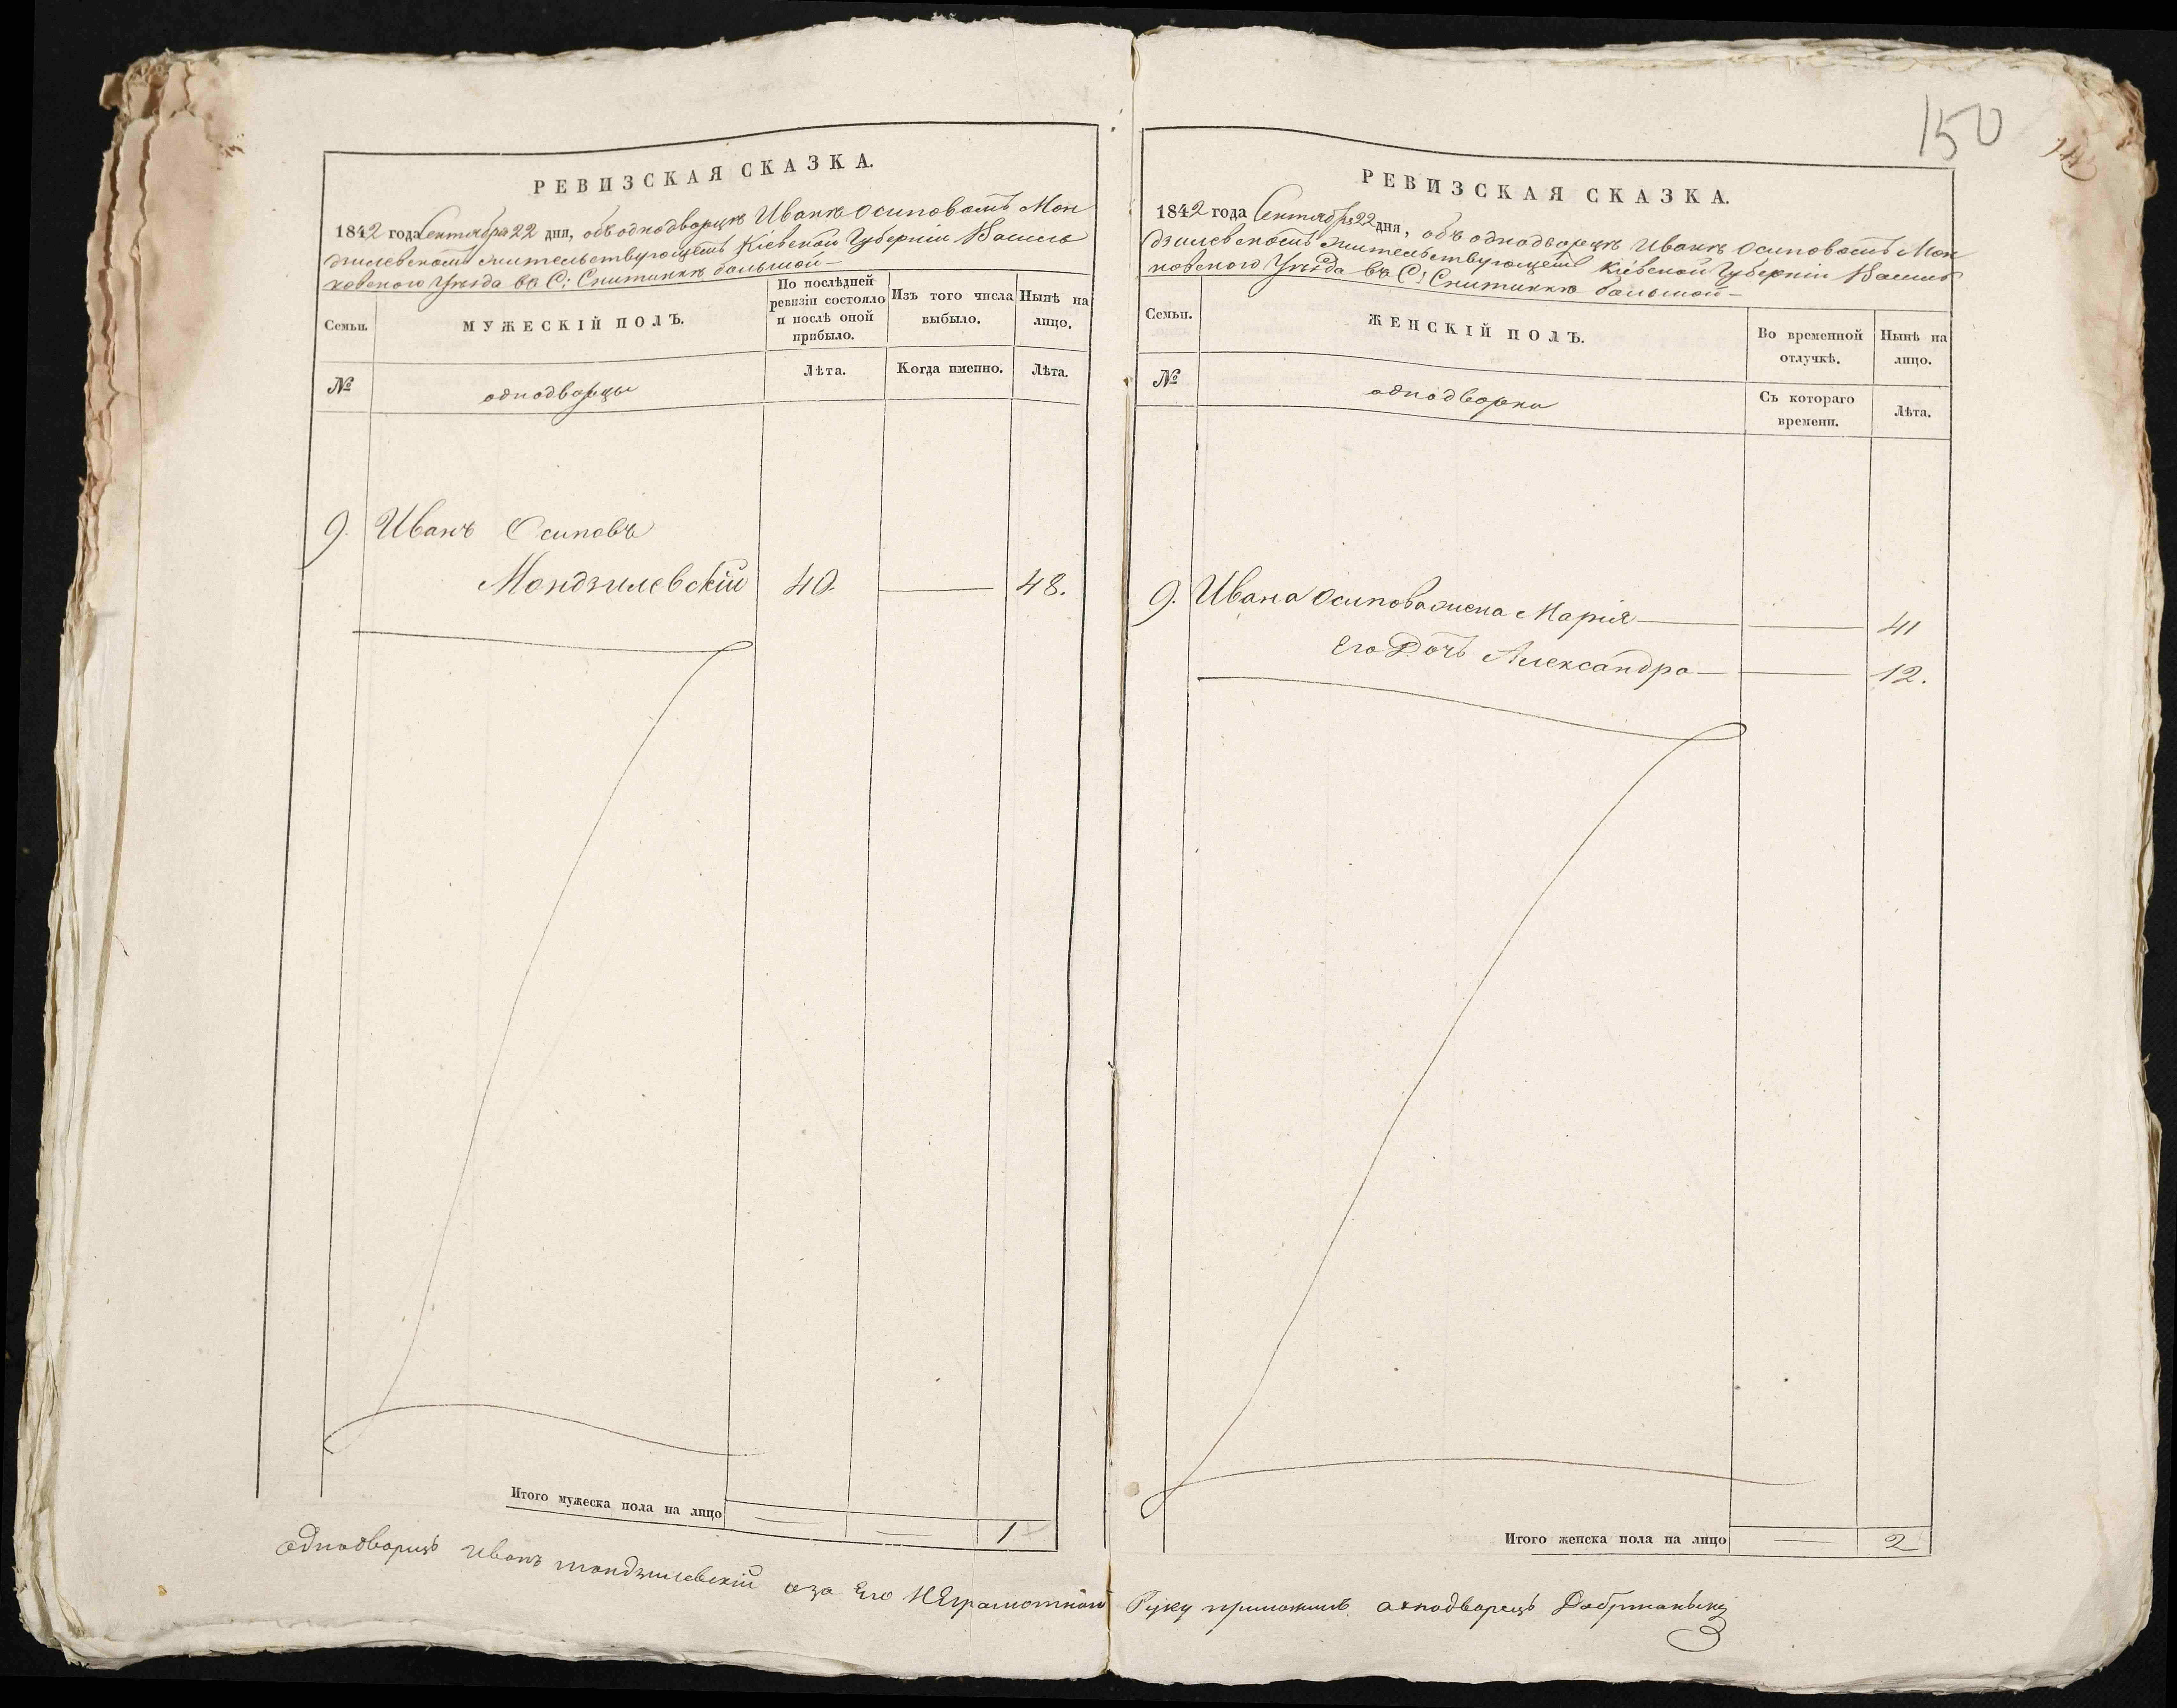 150
РЕВИЗСКАЯ СКАЗКА.
1842 года Сентября 22 дня, объ однодворцѣ Иванѣ Осиповомъ Мон
дзилевскомъ жительствующемъ Кіевской Губерніи Василь
ковского Уѣзда въ С: Снитинкѣ большой—
Семьи.
МУЖЕСКІЙ ПОЛЪ.
По послѣдней
ревизіи состояло
и послѣ оной
прибыло.
Изъ того числа
выбыло.
Нынѣ на
лицо.
№
однодворцы
Лѣта.
Когда именно.
Лѣта.
9. Иванъ Осиповъ
Мондзилевскій 40. — 48.
Итого мужеска пола на лицо — — 1
РЕВИЗСКАЯ СКАЗКА.
1842 года Сентября 22 дня, объ однодворцѣ Иванѣ Осиповомъ Мон
дзилевскомъ жительствующемъ Кіевской Губерніи Василь
ковского Уѣзда въ С: Снитинкѣ большой—
Семьи.
ЖЕНСКІЙ ПОЛЪ.
Во временной
отлучкѣ.
Нынѣ на
лицо.
№
однодворки
Съ котораго
времени.
Лѣта.
9. Ивана Осипова жена Марія — — 41
Его Дочь Александра — — 12.
Итого женска пола на лицо — 2
Однодворицъ Иванъ Мондзилевскій аза Его НЕграмотного Руку приложилъ однодворецъ